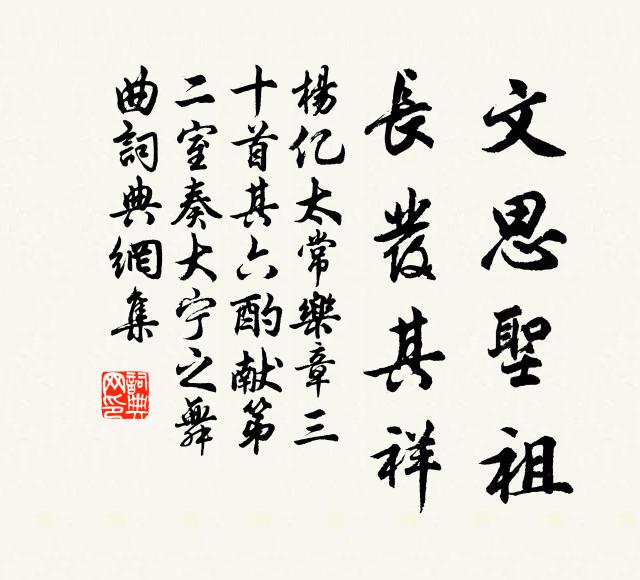 文思聖祖
長發其祥
楊億太常樂章三
十首其六酌献第
二室奏大宁之舞
曲詞典網集
詞典
网印